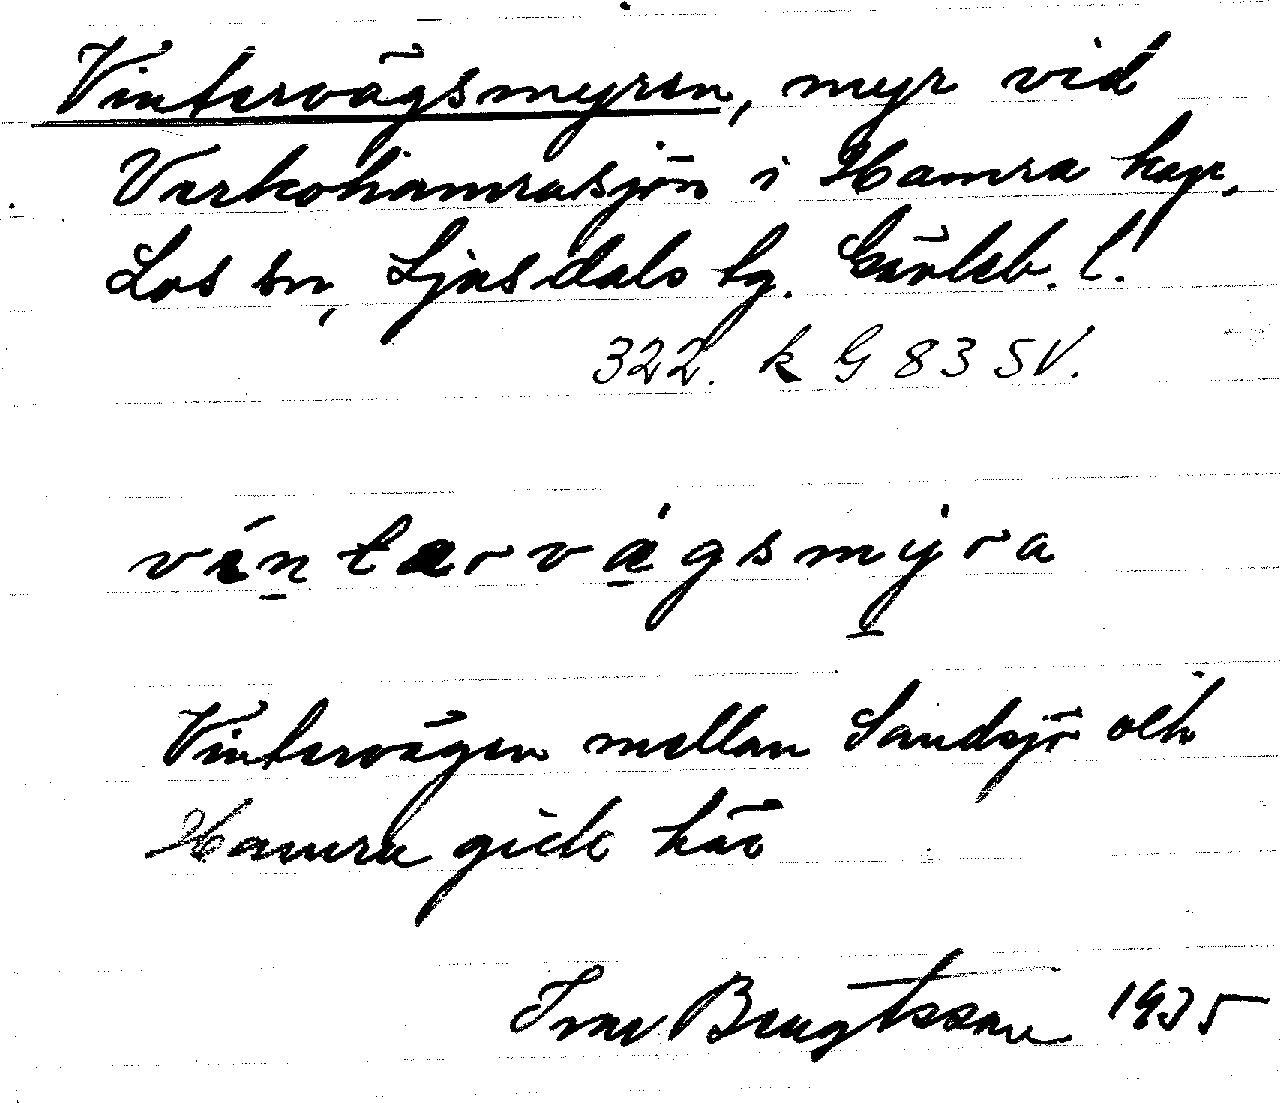 Vintervägsmyren, myr vid
Varkohamrasjön i Hamra kap.
Los sn, Ljusdals tg. Gävleb. l.
322. k G 83 SV.
vintarvägsmyra
Vintervägen mellan Sandsjö och
Hamra gick här
Ivar Bengtsson 1935